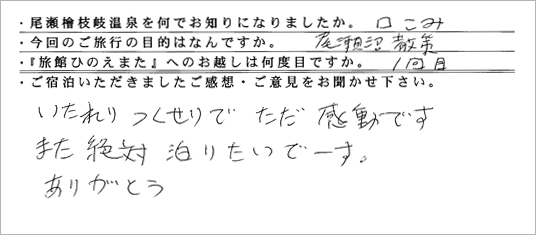 ・尾瀬檜枝岐温泉を何でお知りになりましたか。 口こみ
・今回のご旅行の目的はなんですか。 尾瀬沼散策
・『旅館ひのえまた』へのお越しは何度目ですか。 1回目
・ご宿泊いただきましたご感想・ご意見をお聞かせ下さい。
いたれりつくせりで ただ 感動です
また 絶対 泊りたいでーす。
ありがとう